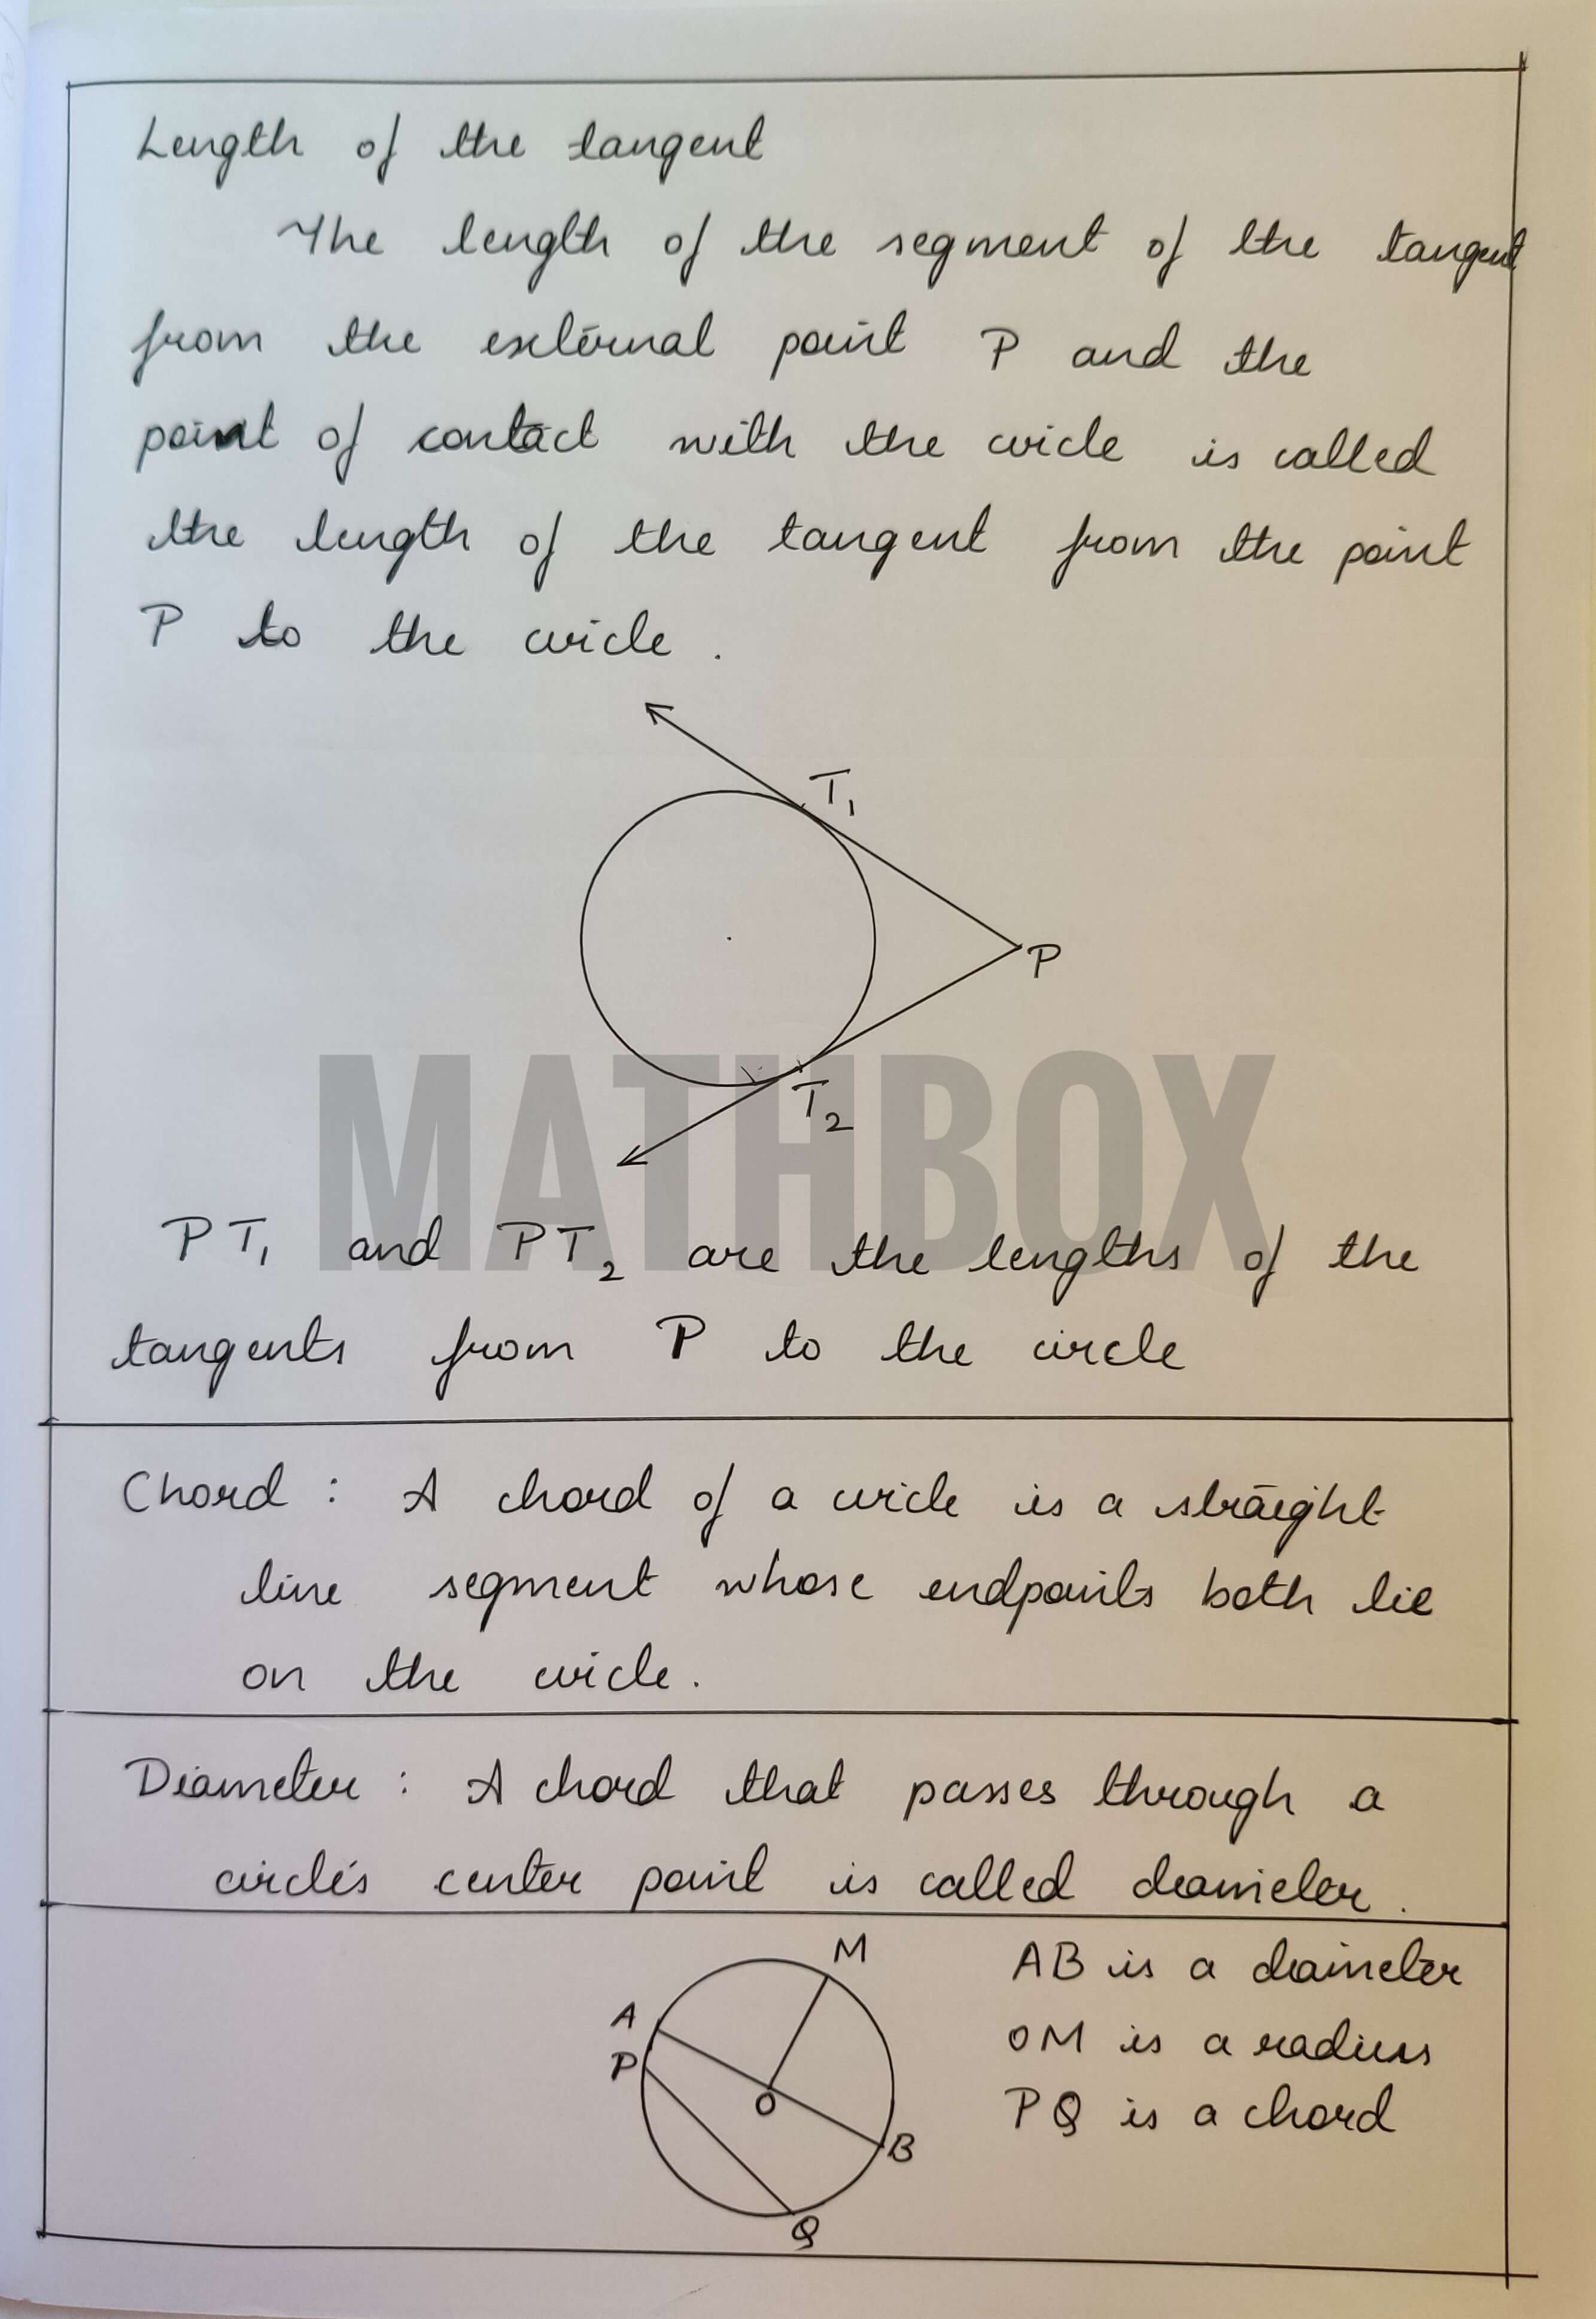 Length of the tangent
The length of the segment of the tangent
from the external point P and the
point of contact with the circle is called
the length of the tangent from the point
P to the circle .
T₁
P
T₂
MATHBOX
PT₁ and PT₂ are the lengths of the
tangents from P to the circle
Chord : A chord of a circle is a straight
line segment whose endpoints both lie
on the circle.
Diameter : A chord that passes through a
circle's center point is called diameter.
M
A
P
O
B
Q
AB is a diameter
OM is a radius
PQ is a chord